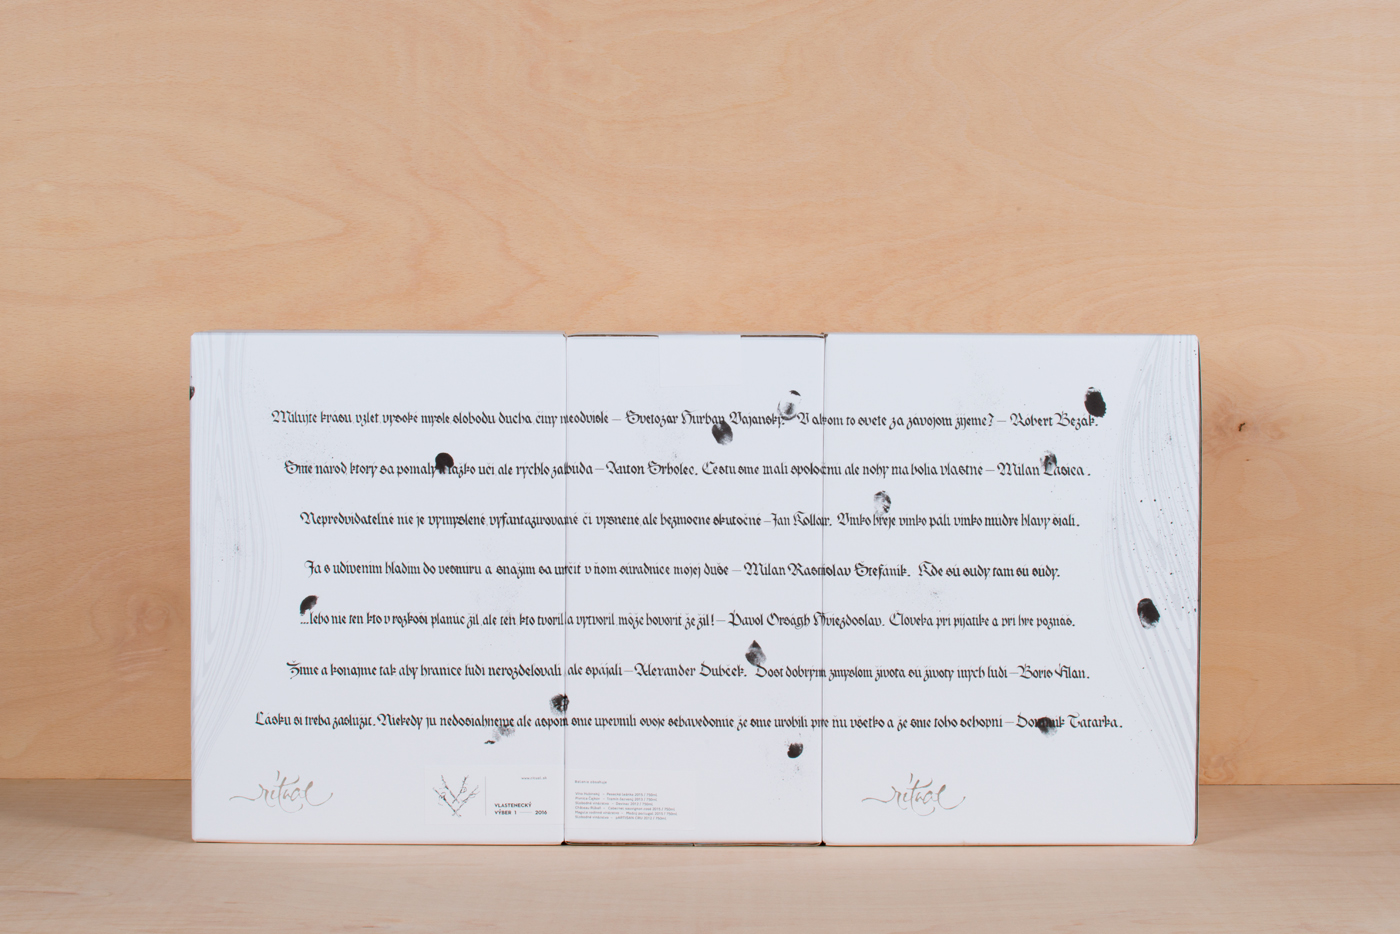 Milujte krasu vzlet vysoké mysle slobodu ducha činy neodvisle – Svetozar Hurban Vajanský. V akom to svete za závojom žijeme? – Robert Bezák.
Sme národ ktorý sa pomaly a ťažko učí ale rýchlo zabúda – Anton Srholec. Cestu sme mali spoločnú ale nohy ma bolia vlastné – Milan Lasica.
Nepredvídateľné nie je vymyslené vyfantazírované či vysnené ale bezmocne skutočné – Jan Kollár. Vínko hreje vínko páli vínko múdre hlavy šiali.
Ja s udivením hľadím do vesmíru a snažím sa určiť v ňom súradnice mojej duše – Milan Rastislav Štefánik. Kde sú sudy tam sú osudy.
...lebo nie ten kto v rozkoši planúc žil ale ten kto tvoril a vytvoril môže hovoriť že žil! – Pavol Országh Hviezdoslav. Človeka pri pijatike a pri hre poznáš.
Žime a konajme tak aby hranice ľudí nerozdeľovali ale spájali – Alexander Dubček. Dosť dobrým zmyslom života sú životy iných ľudí – Boris Filan.
Lásku si treba zaslúžiť. Niekedy ju nedosiahneme ale aspoň sme upevnili svoje sebavedomie že sme urobili pre ňu všetko a že sme toho schopní – Dominik Tatarka.
ritual
www.ritual.sk
VLASTENECKÝ
VÝBER 1 — 2016
ritual